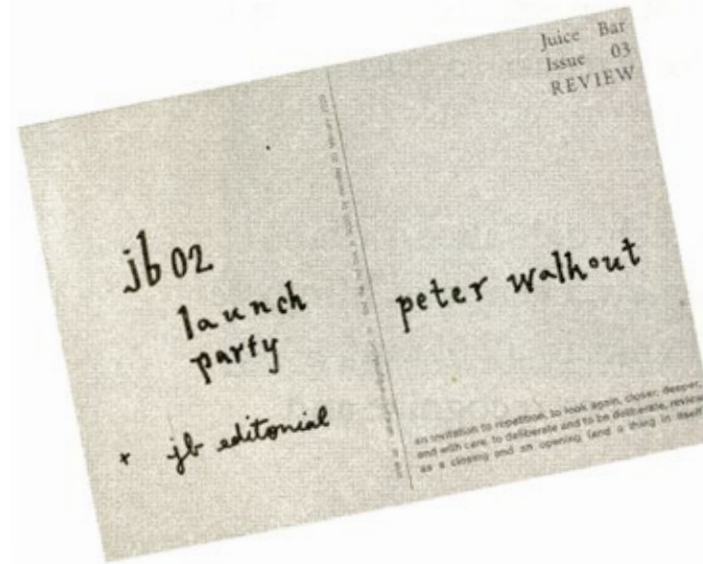 Juice Bar
Issue 03
REVIEW
jb 02
launch
party
+ jb editonial
peter walhout
an invitation to repetition, to look again, closer, deeper,
and with care, to deliberate and to be deliberate, review
as a closing and an opening (and a thing in itself